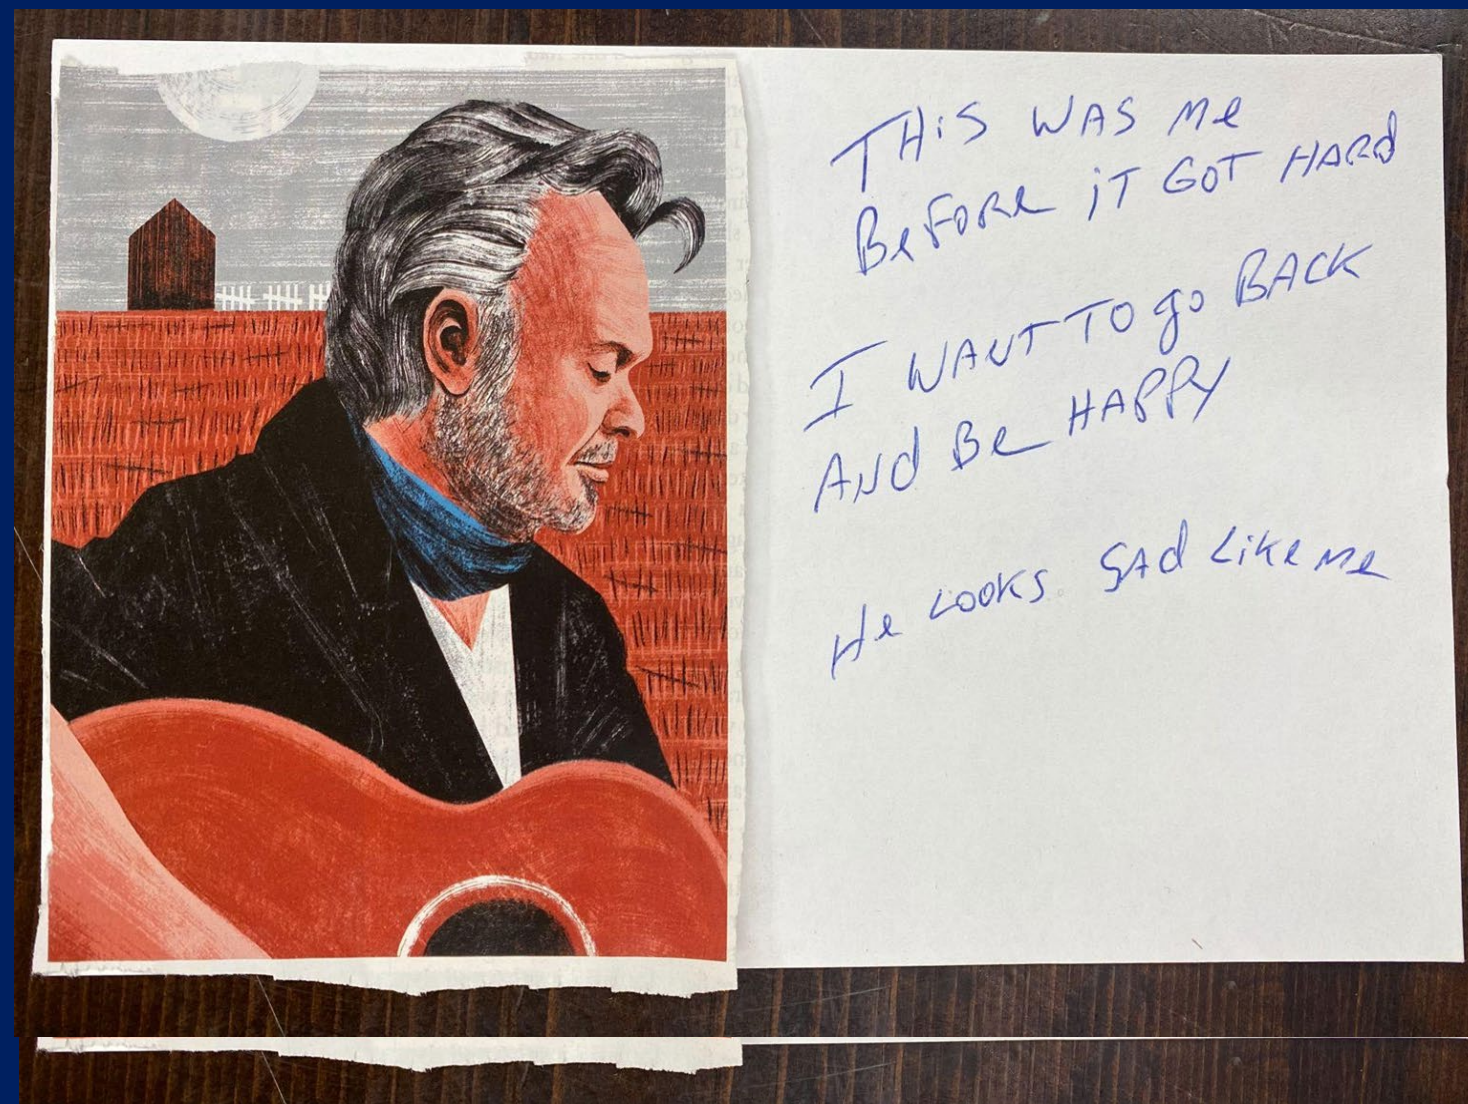 THiS WAS Me
BeFORe iT GOT HARd
I WANT TO go BACK
ANd Be HAPPY
He LOOKS SAd LiKe Me